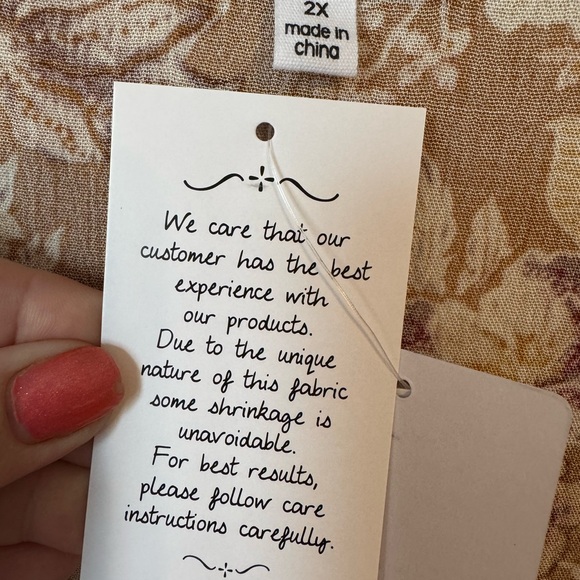 2X
made in
china
We care that our
customer has the best
experience with
our products.
Due to the unique
nature of this fabric
some shrinkage is
unavoidable.
For best results,
please follow care
instructions carefully.